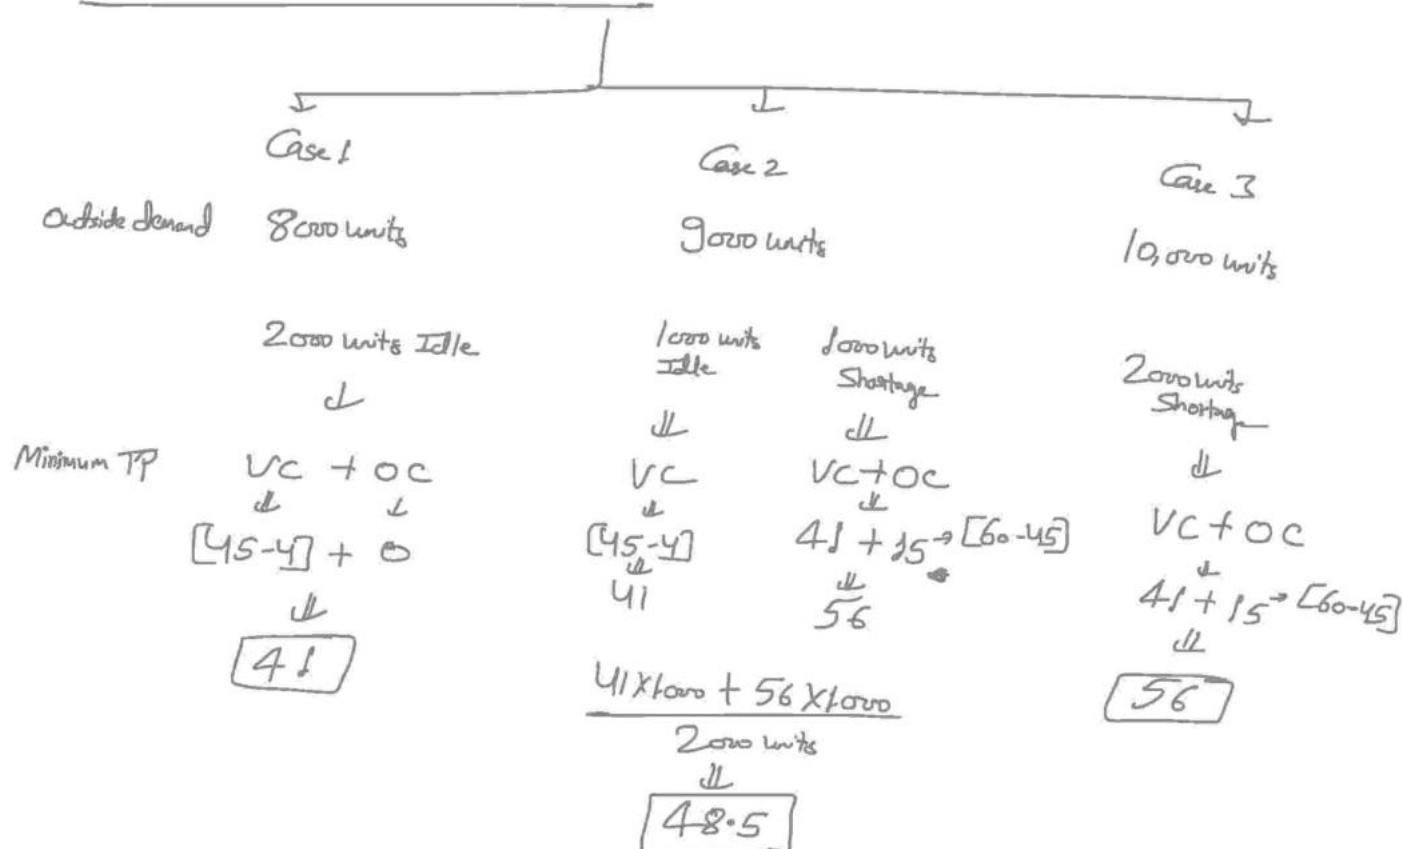 Case 1 Case 2 Case 3
Outside demand 8000 units 9000 units 10,000 units
2000 units Idle 1000 units Idle 1000 units Shortage 2000 units Shortage
Minimum TP VC + OC VC VC+OC VC + OC
[45-4] + 0 [45-4] 41 + 15 → [60-45] 41 + 15 → [60-45]
41 41 56 56
41X1000 + 56X1000
2000 units
48.5